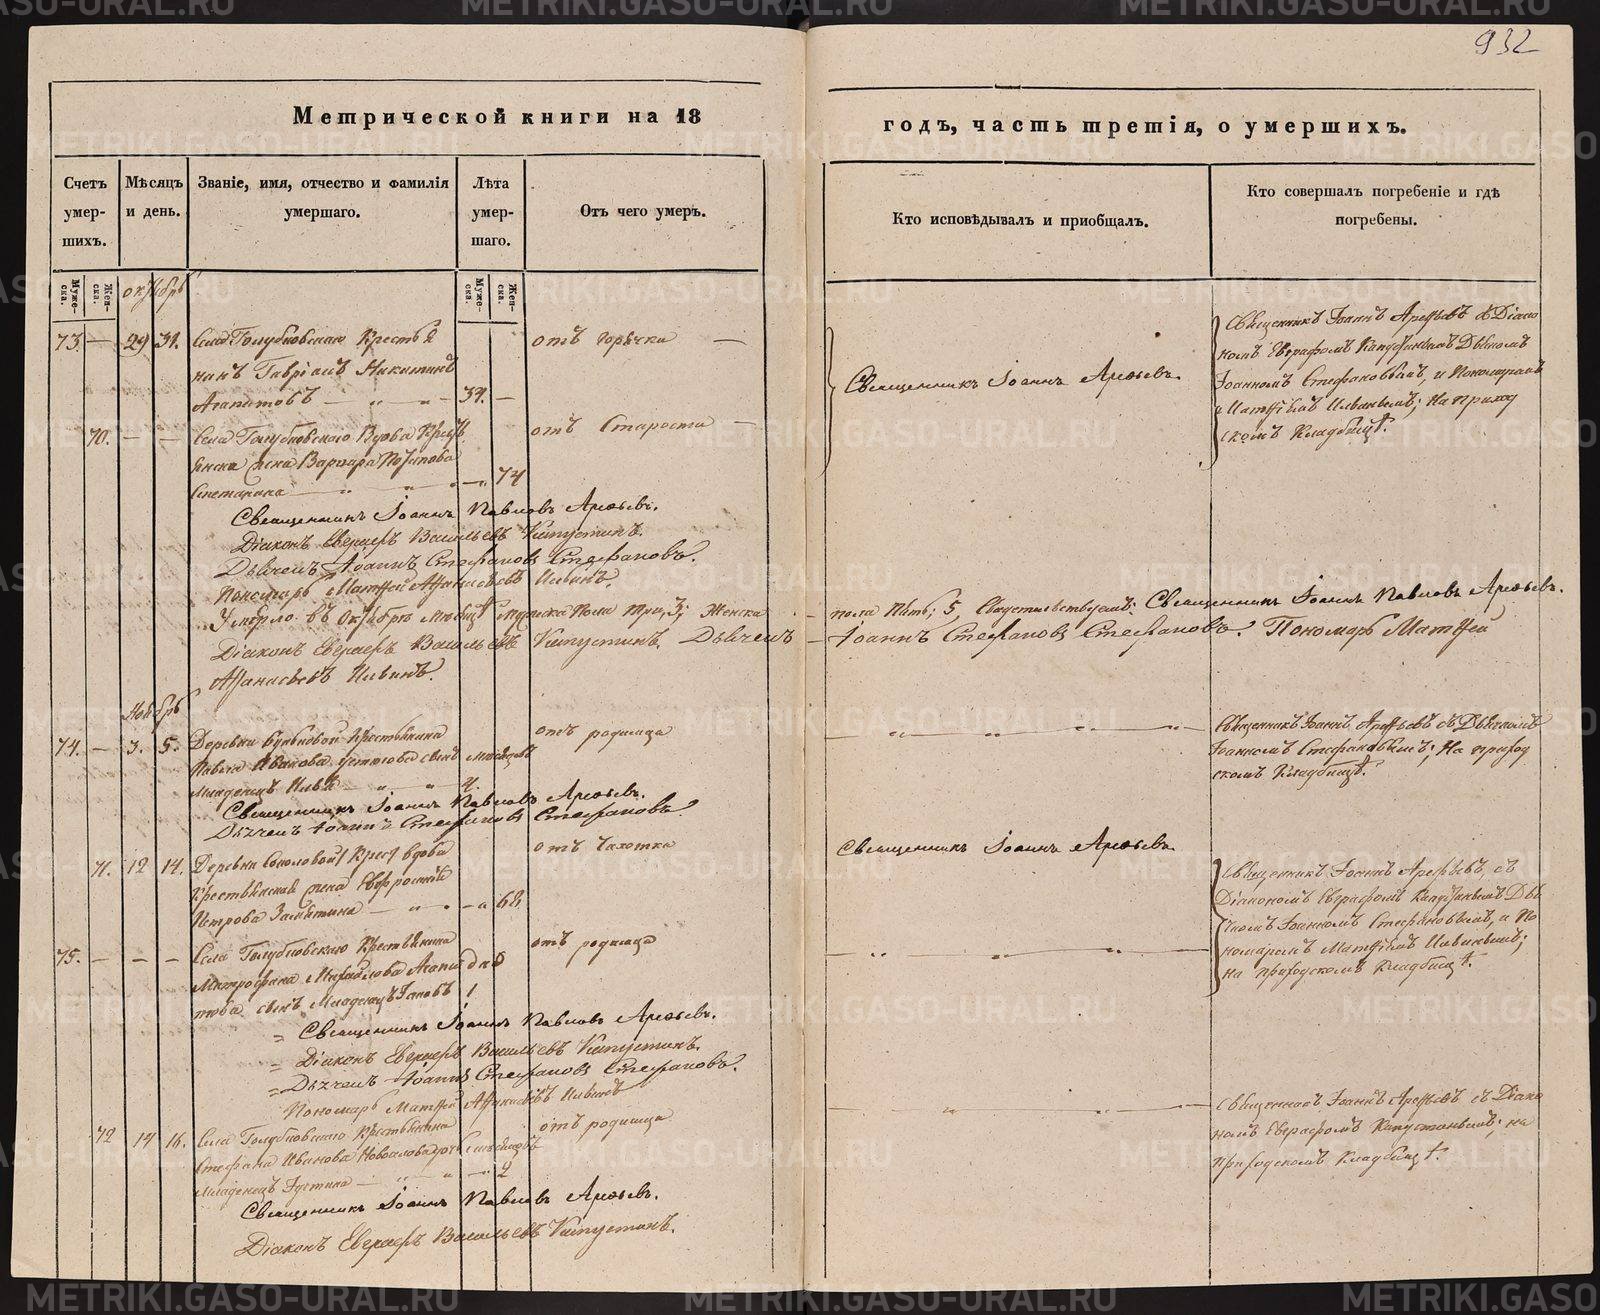 932
Метрической книги на 18
годъ, часть третія, о умершихъ.
Счетъ умер-шихъ.
Мѣсяцъ и день.
Званіе, имя, отчество и фамилія умершаго.
Лѣта умер-шаго.
Отъ чего умеръ.
Кто исповѣдывалъ и приобщалъ.
Кто совершалъ погребеніе и гдѣ погребены.
Муже-ска.
Жен-ска.
Муже-ска.
Жен-ска.
октябрь
73. — 29 31. Села Голубковскаго Крестья
нинъ Гавріилъ Никитинъ
Агапитовъ 39. —
отъ горячки —
Священникъ Іоаннъ Арефьевъ.
Священникъ Іоаннъ Арефьевъ съ Діако
номъ Евграфомъ Капустинымъ Дьячкомъ
Іоанномъ Стефановымъ, и Пономаремъ
Матѳіемъ Ильинымъ; на приход
скомъ Кладбищѣ.
70. — — Села Голубковскаго Вдова Крестья
янска жена Варвара
74
отъ Старости —
Священникъ Іоаннъ Павловъ Арефьевъ.
Діаконъ Евграфъ Васильевъ Капустинъ.
Дьячекъ Іоаннъ Стефановъ Стефановъ.
Пономарь Матѳей Аѳанасьевъ Ильинъ.
Умерло въ Октябрѣ Мѣсяцѣ Мужска пола три, 3; Женска
пола пять; 5, Свидетельствуемъ: Священникъ Іоаннъ Павловъ Арефьевъ.
Діаконъ Евграфъ Васильевъ Капустинъ. Дьячекъ
Іоаннъ Стефановъ Стефановъ. Пономарь Матѳей
Аѳанасьевъ Ильинъ.
Ноябрь
74. — 3. 5. Деревни Крестьянина
Павла Иванова сынъ мѣсяцовъ
Младенецъ Илья
отъ родимца
Священникъ Іоаннъ Арефьевъ съ Дьячкомъ
Іоанномъ Стефановымъ; на приход
скомъ Кладбищѣ.
Священникъ Іоаннъ Павловъ Арефьевъ.
Дьячекъ Іоаннъ Стефановъ Стефановъ.
71. 12 14. Деревни Соколовой Крест вдова
Крестьянская жена Евфросинія
Петрова Замятина 68.
отъ Чахотки
Священникъ Іоаннъ Арефьевъ.
Священникъ Іоаннъ Арефьевъ, съ
Діакономъ Евграфомъ Капустинымъ Дья
чкомъ Іоанномъ Стефановымъ, и По
номаремъ Матѳіемъ Ильинымъ;
на приходскомъ Кладбищѣ.
75. — — — Села Голубковскаго Крестьянина
Митрофана Михайлова Агапи дня
това сынъ Младенецъ Іаковъ 1
отъ родимца
Священникъ Іоаннъ Павловъ Арефьевъ.
Діаконъ Евграфъ Васильевъ Капустинъ.
Дьячекъ Іоаннъ Стефановъ Стефановъ.
Пономарь Матѳей Аѳанасьевъ Ильинъ
72 14 16. Села Голубковскаго Крестьянина
Стефана Иванова дочь мѣсяцовъ
Младенецъ Іустина 2
отъ родимца
Священникъ Іоаннъ Арефьевъ съ Діако
номъ Евграфомъ Капустинымъ; на
приходскомъ Кладбищѣ.
Священникъ Іоаннъ Павловъ Арефьевъ.
Діаконъ Евграфъ Васильевъ Капустинъ.
METRIKI.GASO-URAL.RU